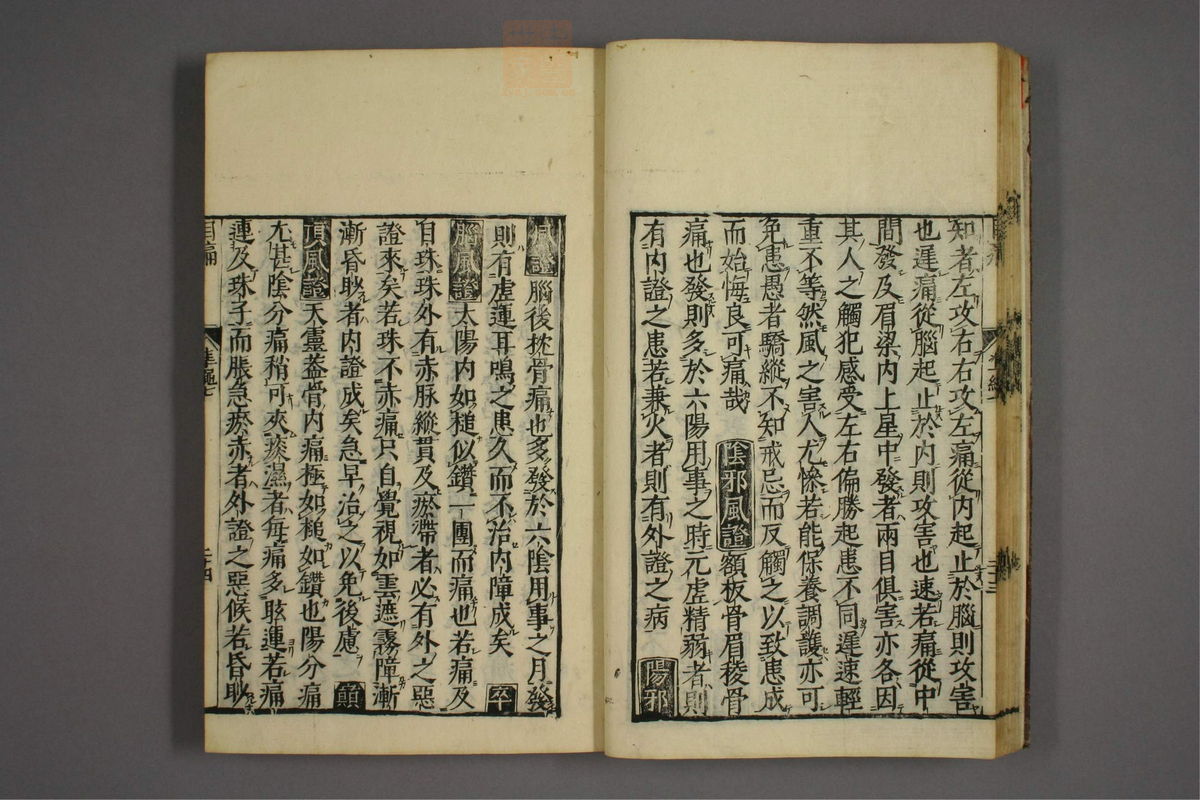 知者左攻右右攻左痛從内起止於腦則攻害
也遲痛從腦起止於内則攻害也速若痛從中
間發及眉梁内上星中發者兩目俱害亦各因
其人之觸犯感受左右偏勝起患不同遲速輕
重不等然風之害人尤慘若能保養調護亦可
免患愚者驕縱不知戒忌而反觸之以致患成
而始悔良可痛哉 陰邪風證 額板骨眉稜骨
痛也發則多於六陽用事之時元虛精弱者則
有内證之患若兼火者則有外證之病 陽邪
風證 腦後枕骨痛也多發於六陰用事之月發
則有虛運耳鳴之患久而不治内障成矣 卒
腦風證 太陽内如槌似鑽一團而痛也若痛及
目珠珠外有赤脉縱貫及瘀滯者必有外之惡
證來矣若珠不赤痛只自覺視如雲遮霧障漸
漸昏眇者内證成矣急早治之以免後慮 巔
頂風證 天靈蓋骨内痛極如槌如鑽也陽分痛
尤甚陰分痛稍可夾痰濕者每痛多眩運若痛
連及珠子而脹急瘀赤者外證之惡候若昏眇
目痛
準繩七
二十四